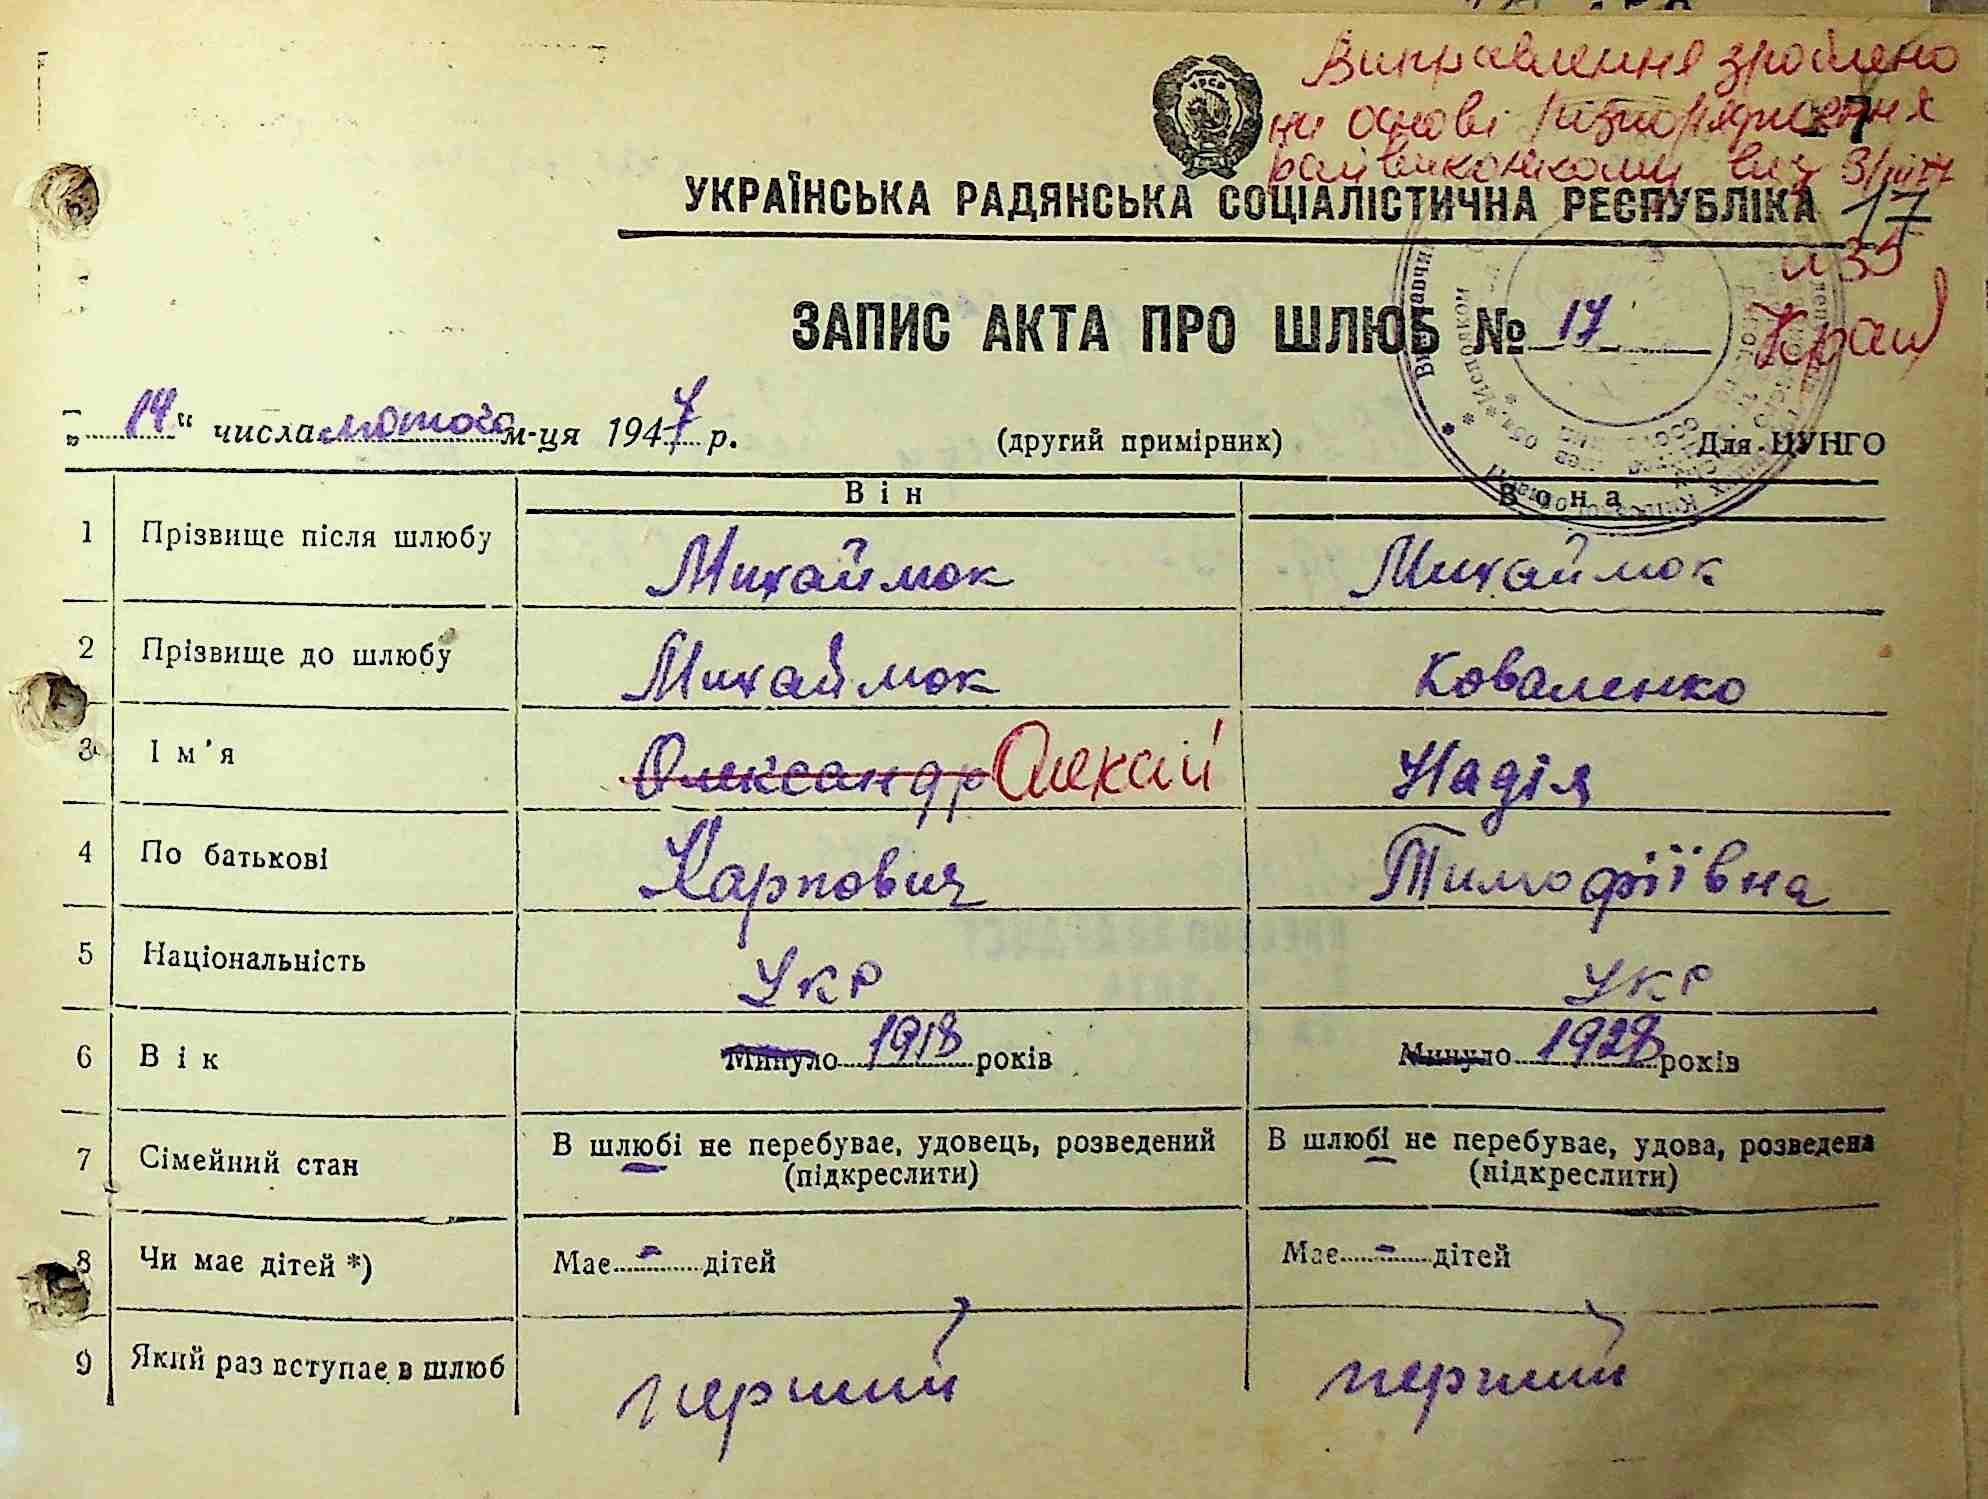 Виправлення зроблено
на основі розпорядження
райвиконкому від 3/III 57
17
УКРАЇНСЬКА РАДЯНСЬКА СОЦІАЛІСТИЧНА РЕСПУБЛІКА
№ 35
ЗАПИС АКТА ПРО ШЛЮБ № 17
„14“ числа лютого м-ця 1947 р. (другий примірник) Для ЦУНГО
Він Вона
1 Прізвище після шлюбу Михаймок Михаймок
2 Прізвище до шлюбу Михаймок Коваленко
3 Ім'я Олександр Олексій Надія
4 По батькові Карпович Тимофіївна
5 Національність Укр Укр
6 Вік Минуло 1918 років Минуло 1928 років
7 Сімейний стан В шлюбі не перебуває, удовець, розведений В шлюбі не перебуває, удова, розведена
(підкреслити) (підкреслити)
8 Чи має дітей *) Має - дітей Має - дітей
9 Який раз вступає в шлюб перший перший